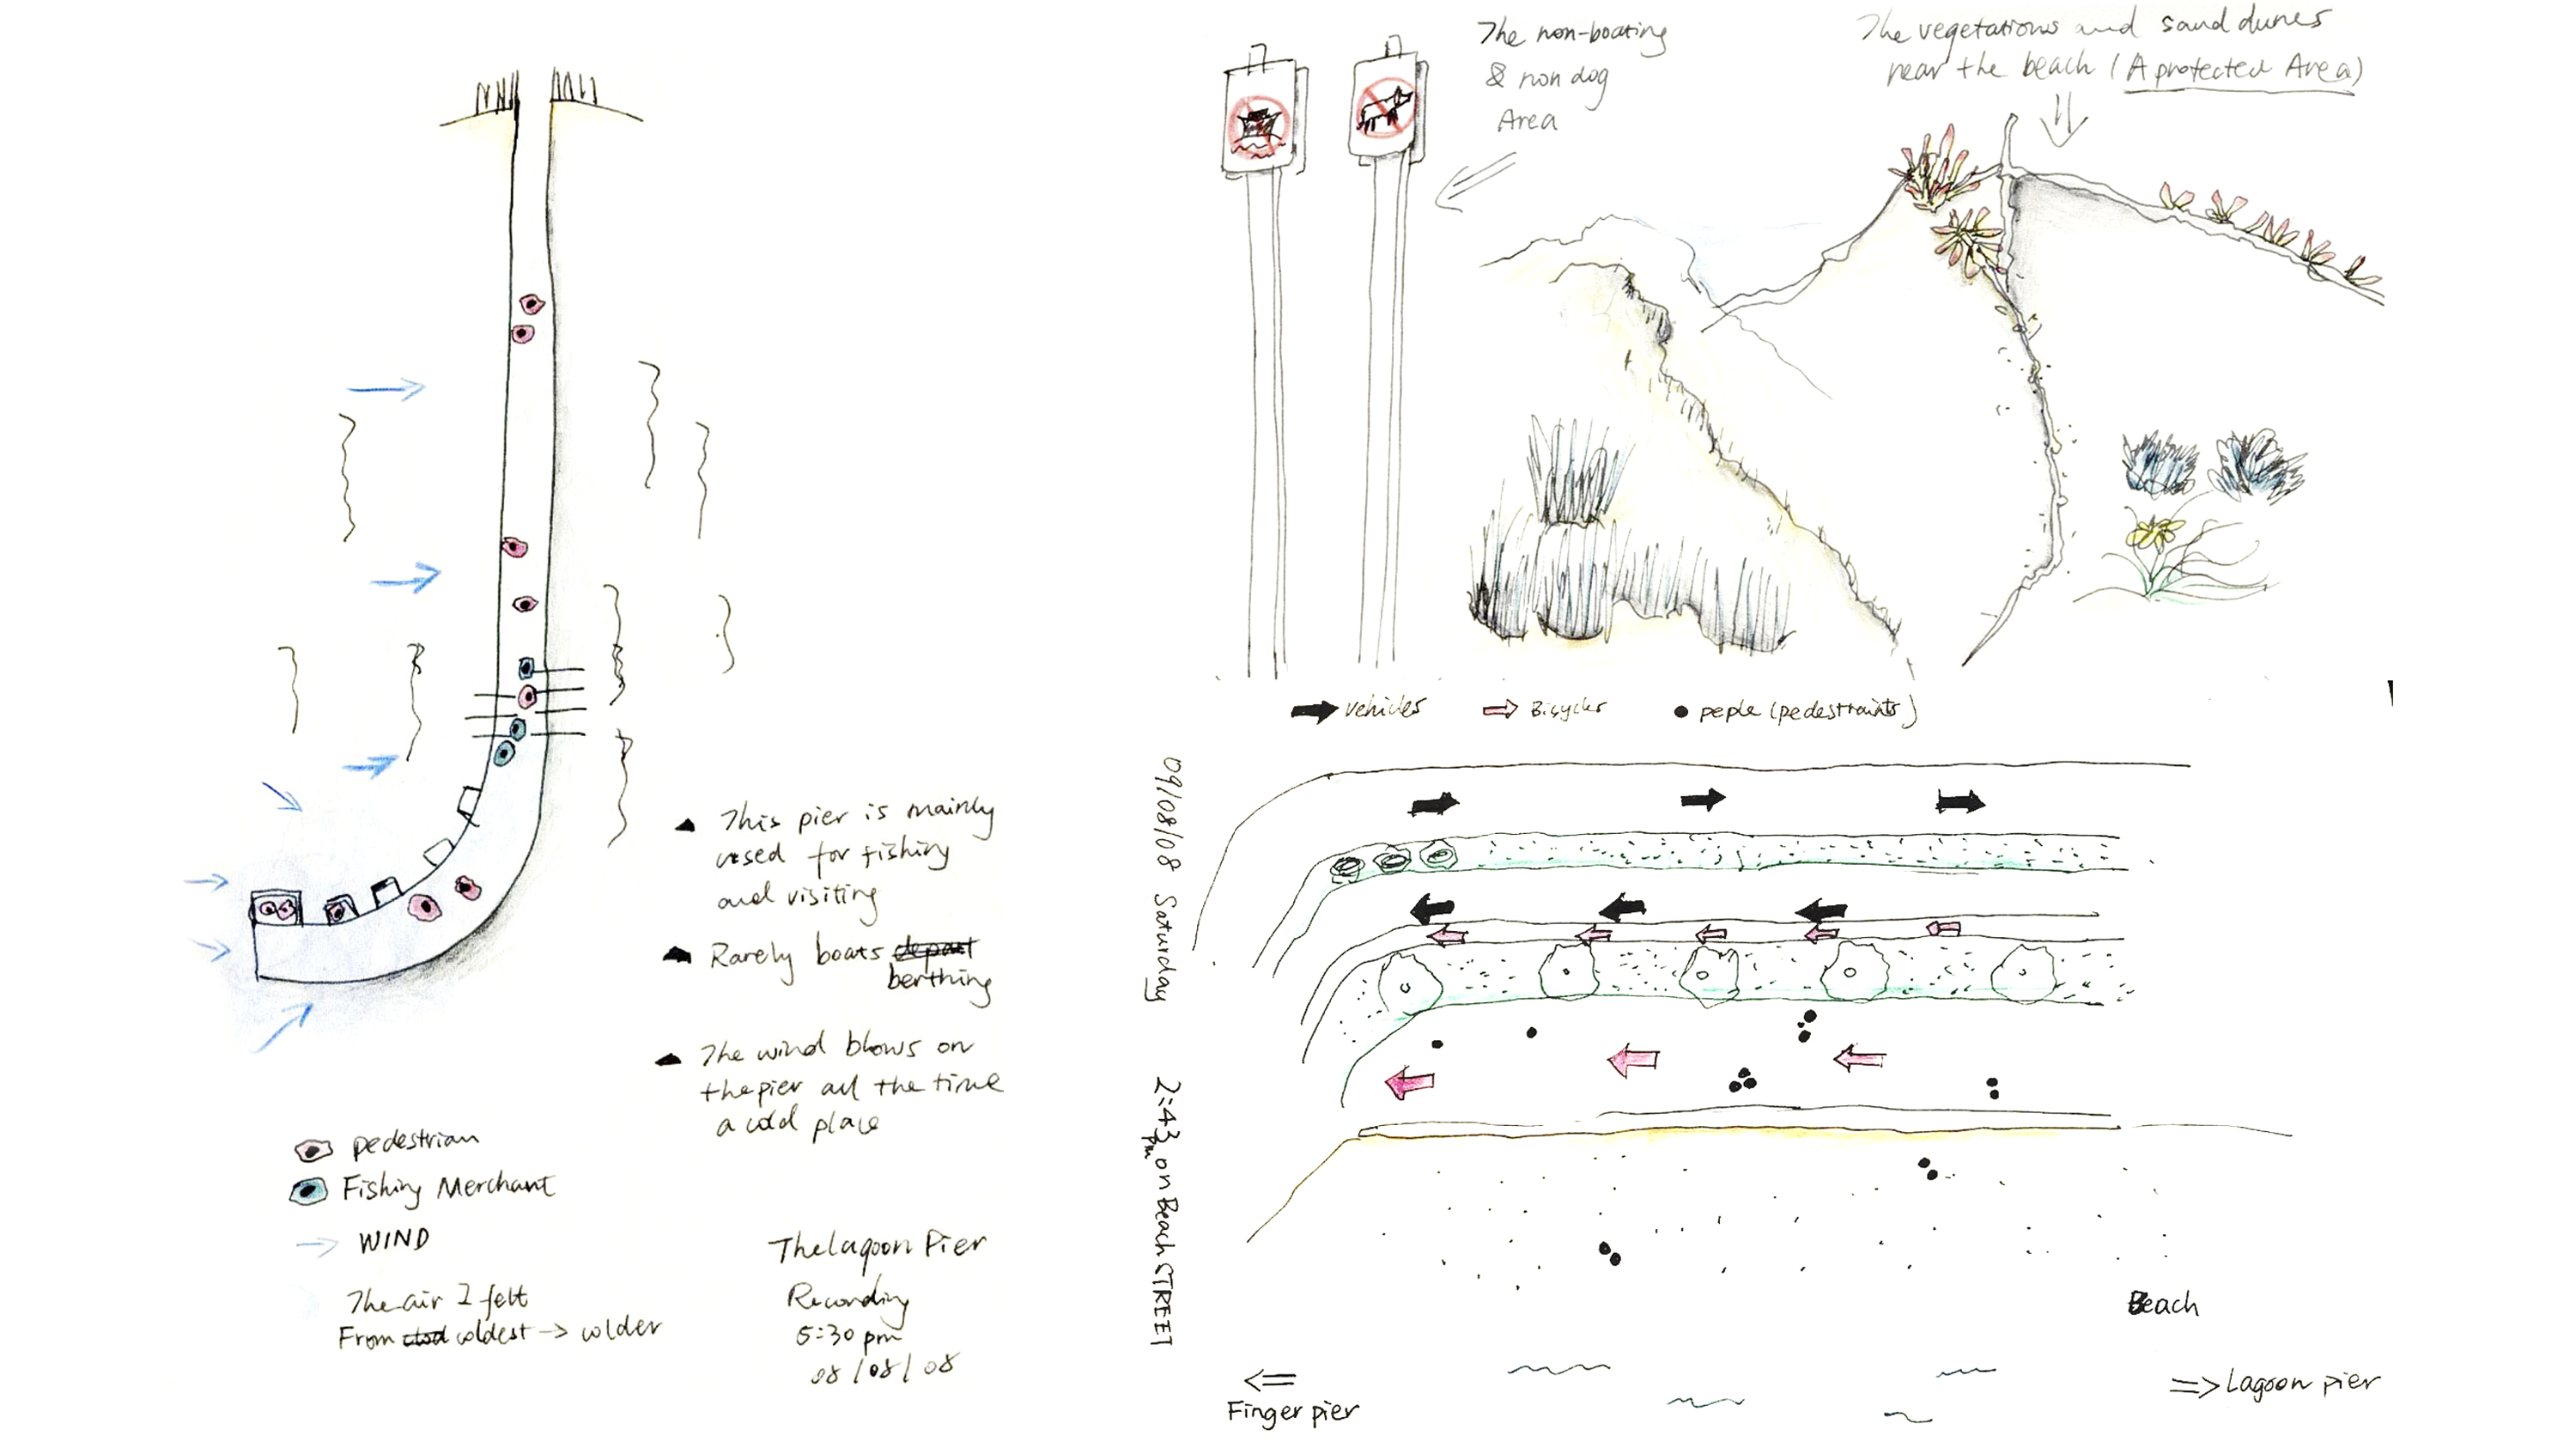 ▲ This pier is mainly
used for fishing
and visiting
▲ Rarely boats depart
berthing
▲ The wind blows on
the pier all the time
a cold place
pedestrian
Fishing Merchant
WIND
The air I felt
From clod coldest → colder
The lagoon Pier
Recording
5:30 pm
08/08/08
The non-boating
& non dog
Area
The vegetations and sand dunes
near the beach (A protected Area)
vehicles
Bicycles
peple (pedestraints)
09/08/08 Saturday 2:43 pm on Beach STREET
Beach
⇐
Finger pier
⇒ Lagoon pier